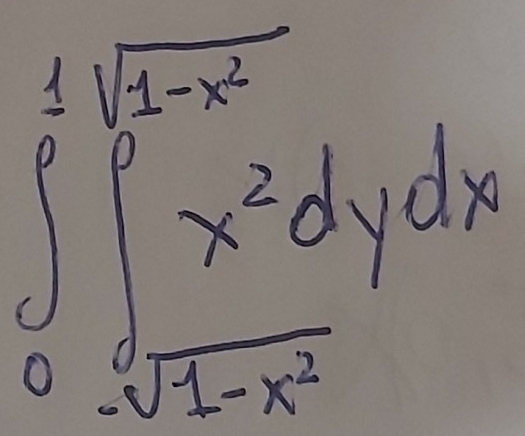 ∫₀¹ ∫_{-√(1-x²)}^{√(1-x²)} x² dy dx